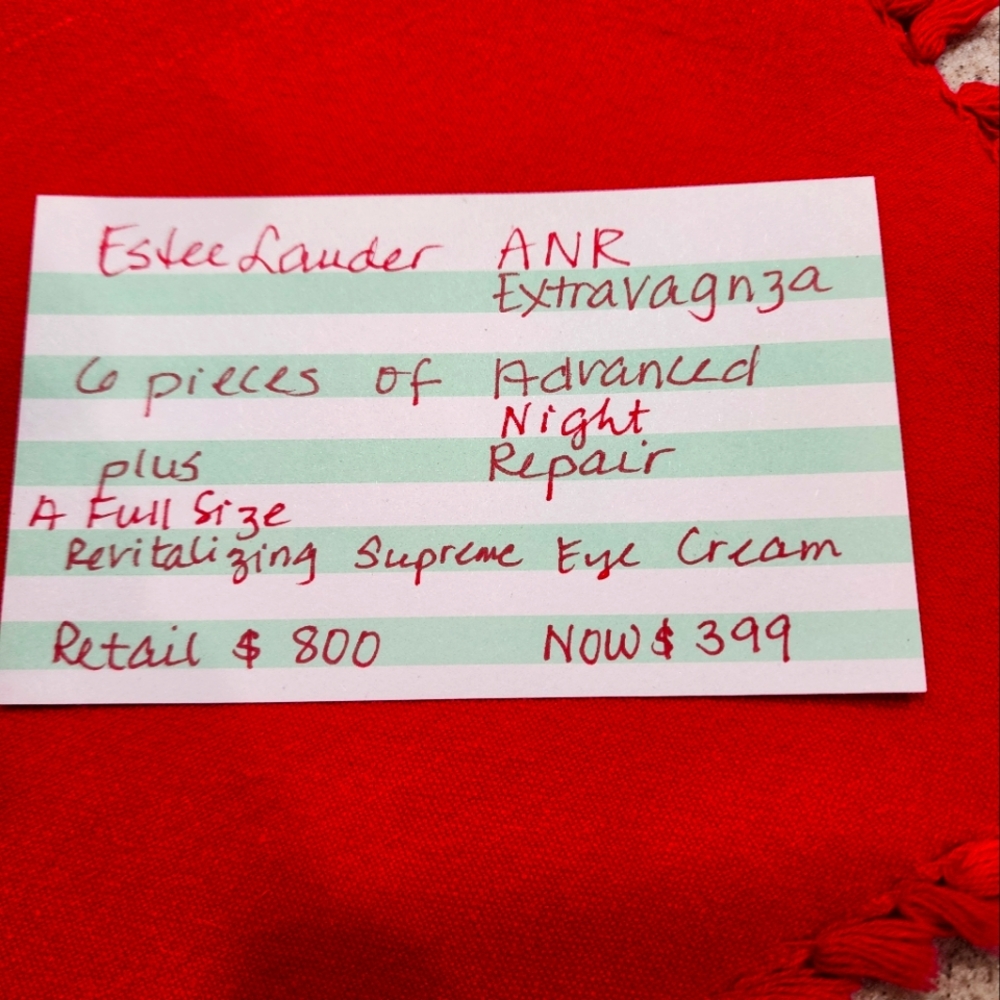 Estee Lauder ANR
Extravagnza
6 pieces of Advanced
Night
plus Repair
A Full Size
Revitalizing Supreme Eye Cream
Retail $ 800 NOW $ 399